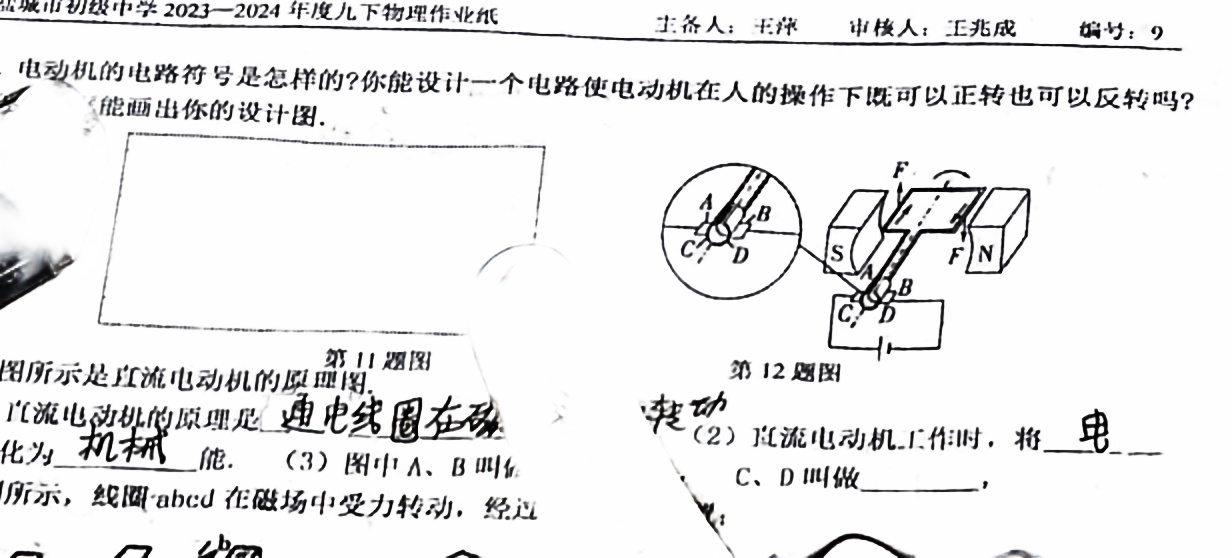 盐城市初级中学 2023—2024 年度九下物理作业纸 主备人：王萍 审核人：王兆成 编号：9
电动机的电路符号是怎样的?你能设计一个电路使电动机在人的操作下既可以正转也可以反转吗?
能画出你的设计图.
F
A
B
C
D
S
F
N
A
B
C
D
第 11 题图
第 12 题图
图所示是直流电动机的原理图.
直流电动机的原理是 通电线圈在磁 转动 (2) 直流电动机工作时，将 电
化为 机械 能. (3) 图中 A、B 叫做 C、D 叫做 ，
所示，线圈 abcd 在磁场中受力转动，经过
b